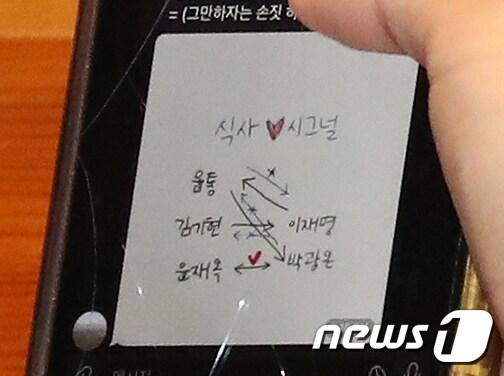 = (그만하자는 손짓 하
식사 ♥ 시그널
윤통
김기현 이재명
윤재옥 ♥ 박광온
news1